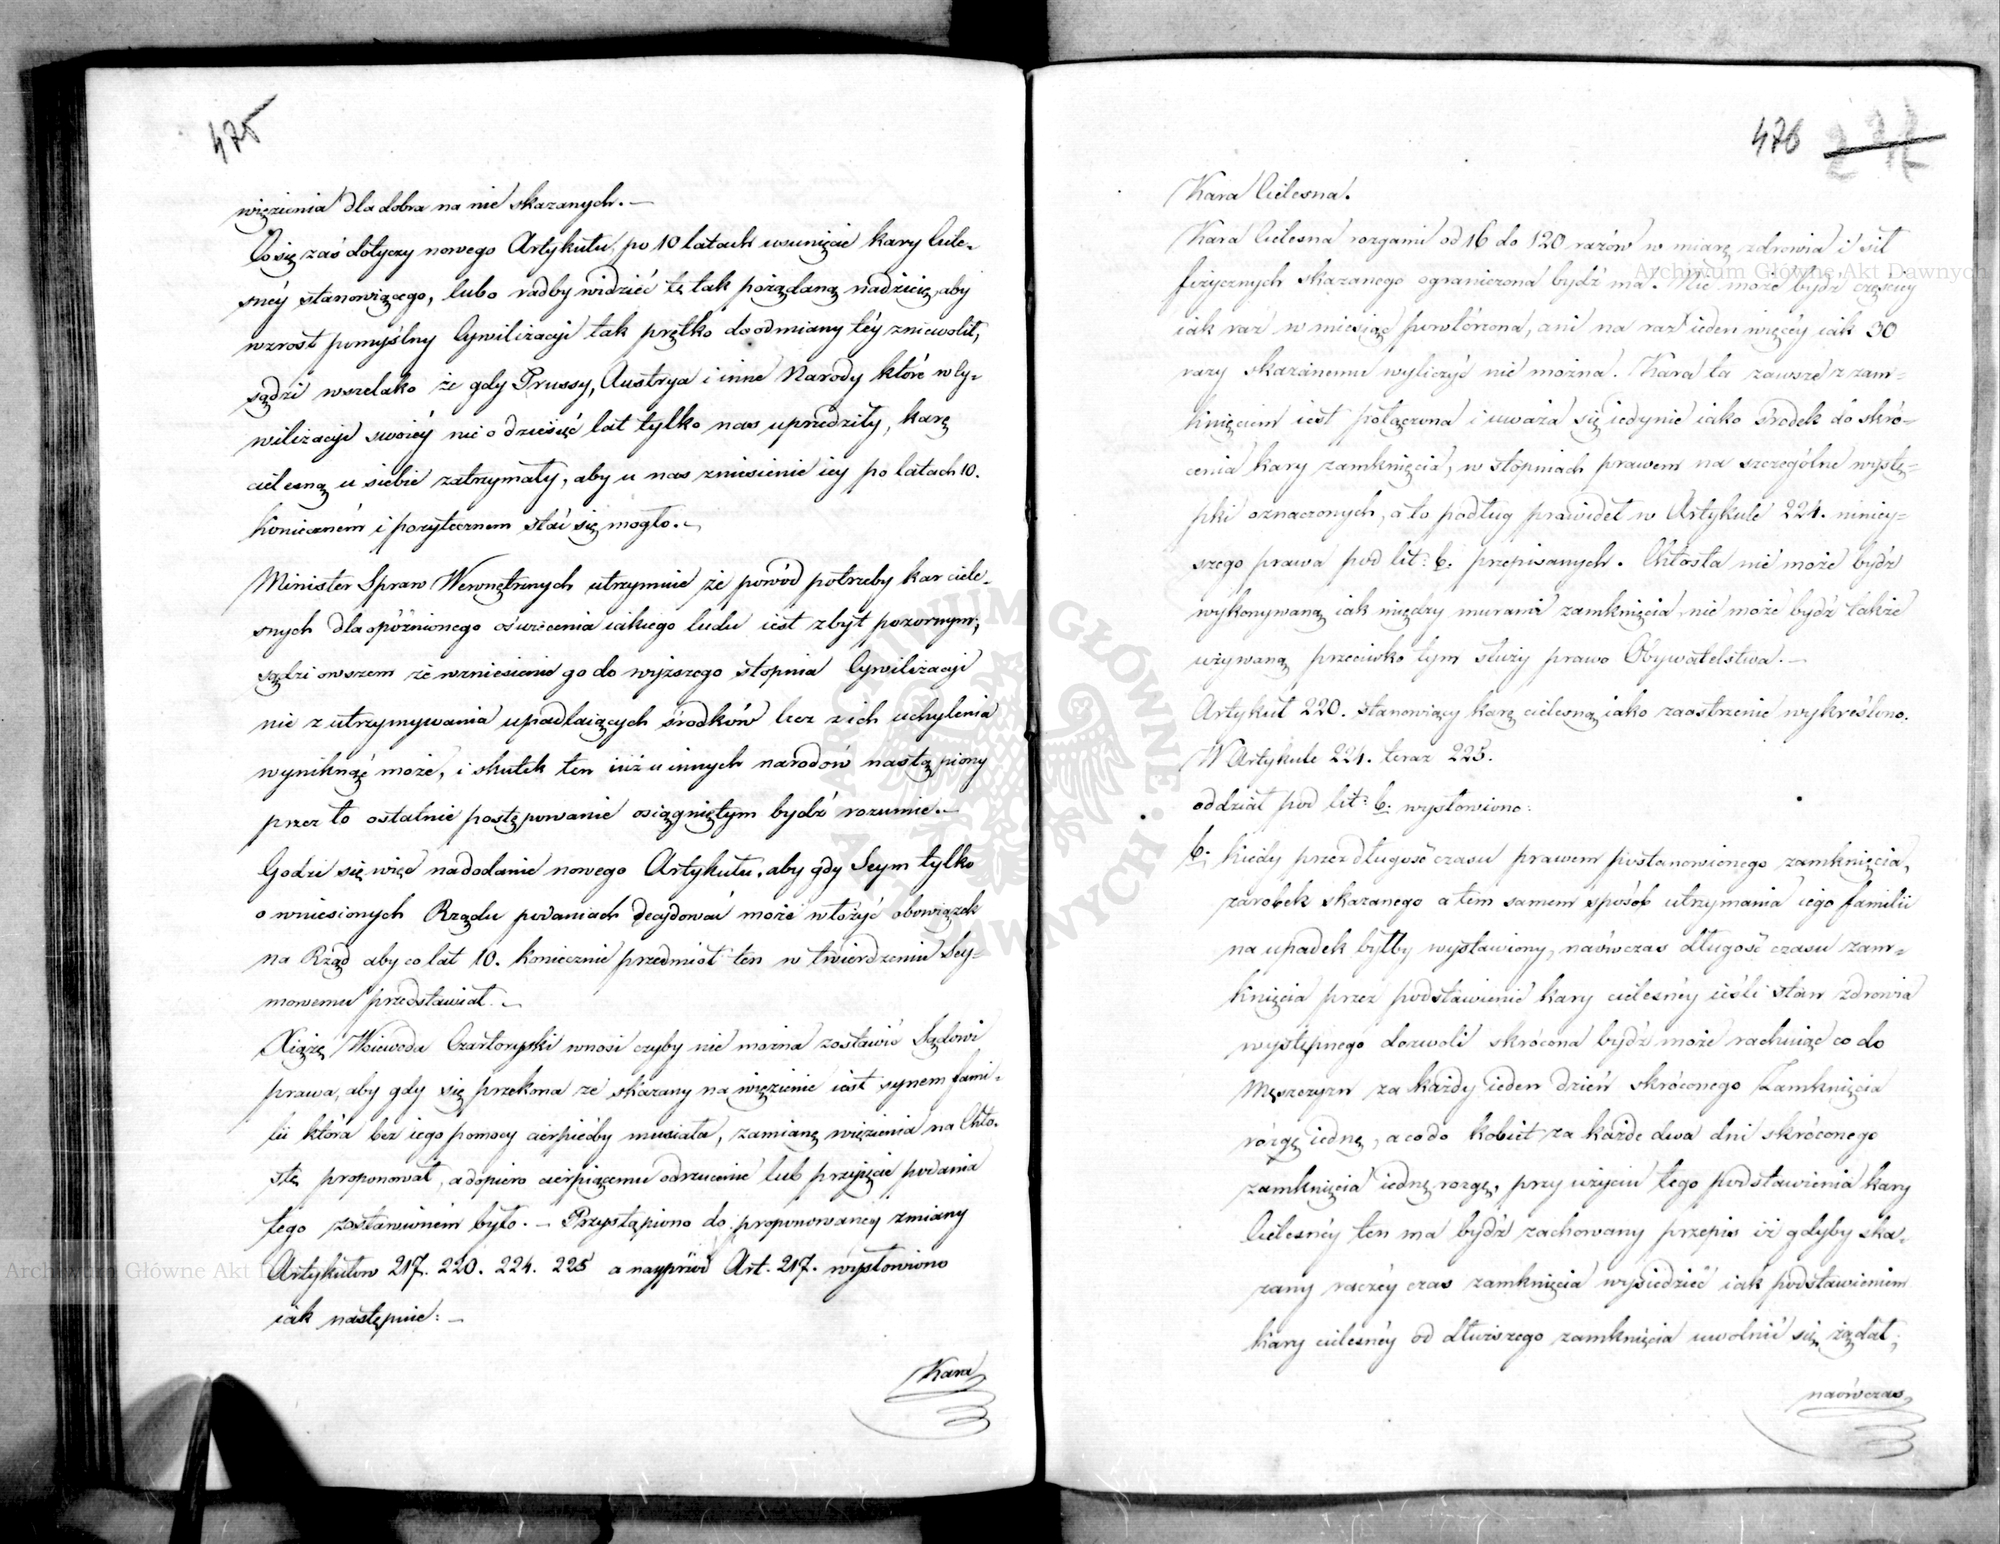 475
więzienia dla dobra na nie skazanych. —
Co się zaś dotyczy nowego Artykułu, po 10 latach usunięcie kary ciele-
snéy stanowiącego, lubo radby widzieć tę tak pożądaną nadzieię, aby
wzrost pomyślny Cywilizacyi tak prętko do odmiany téy zniewolił,
sądzi wszelako że gdy Prussy, Austrya i inne Narody które w Cy-
wilizacyi swoiéy nie o dziesięć lat tylko nas uprzedziły, karę
cielesną u siebie zatrzymały, aby u nas zniesienie iey po latach 10.
konieczném i pożytecznem stać się mogło. —
Minister Spraw Wewnętrznych utrzymuie że powód potrzeby kar ciele-
snych dla opóźnionego oświecenia iakiego ludu iest zbyt pozornym;
sądzi owszem że wzniesienie go do wyższego stopnia Cywilizacyi
nie z utrzymywania upadlaiących środków lecz z ich uchylenia
wyniknąć może, i skutek ten iuż u innych narodów nastąpiony
przez to ostatnie postępowanie osiągniętym bydź rozumie. —
Godzi się więc na dodanie nowego Artykułu, aby gdy Seym tylko
o wniesionych Rządu podaniach decydować może włożyć obowiązek
na Rząd aby co lat 10. koniecznie przedmiot ten w twierdzeniu Sey-
mowemu przedstawiał. —
Xiążę Woiewoda Czartoryski wnosi czyby nie można zostawić Sądowi
prawa, aby gdy się przekona że skazany na więzienie iest synem fami-
lii która bez iego pomocy cierpiećby musiała, zamianę więzienia na Chło-
stę proponował, a dopiero cierpiącemu odrzucenie lub przyięcie podania
tego zostawionem było. — Przystąpiono do proponowaney zmiany
Artykułow 217. 220. 224. 225 a nayprzód Art. 217. wysłowiono
iak następuie: —
Kara
476
Kara Cielesna.
Kara Cielesna rozgami od 16 do 120 razów w miarę zdrowia i sił
fizycznych skazanego ograniczona bydź ma. Nie może bydź częściey
iak raz w miesiąc powtórzona, ani na raz ieden więcéy iak 30
razy skazanemu wyliczyć nie można. Kara ta zawsze z zam-
knięciem iest połączona i uważa się iedynie iako środek do skró-
cenia kary zamknięcia, w stopniach prawem na szczególne wystę-
pki oznaczonych, a to podług prawideł w Artykule 224. niniey-
szego prawa pod lit: b. przepisanych. Chłosta nie może bydź
wykonywaną iak między murami zamknięcia, nie może bydź także
używaną przeciwko tym służy prawo Obywatelstwa. —
Artykuł 220. stanowiący karę cielesną iako zaostrzenie wykreślono.
W Artykule 224. teraz 223.
oddział pod lit: b. wysłowiono:
b. kiedy przez długość czasu prawem postanowionego zamknięcia,
zarobek skazanego a tem samem sposób utrzymania iego familii
na upadek byłby wystawiony, naówczas długość czasu zam-
knięcia przez podstawienie kary cielesnéy ieśli stan zdrowia
występnego dozwoli skrócona bydź może rachuiąc co do
Męszczyzn za każdy ieden dzień skróconego Zamknięcia
rózgę iednę, a co do kobiet za każde dwa dni skróconego
zamknięcia iednę rozgę, przy użyciu tego podstawienia kary
Cielesnéy ten ma bydź zachowany przepis iż gdyby ska-
zany raczéy czas zamknięcia wysiedzieć iak podstawieniem
kary cielesnéy od dłuższego zamknięcia uwolnić się żądał,
naówczas
Archiwum Główne Akt Dawnych